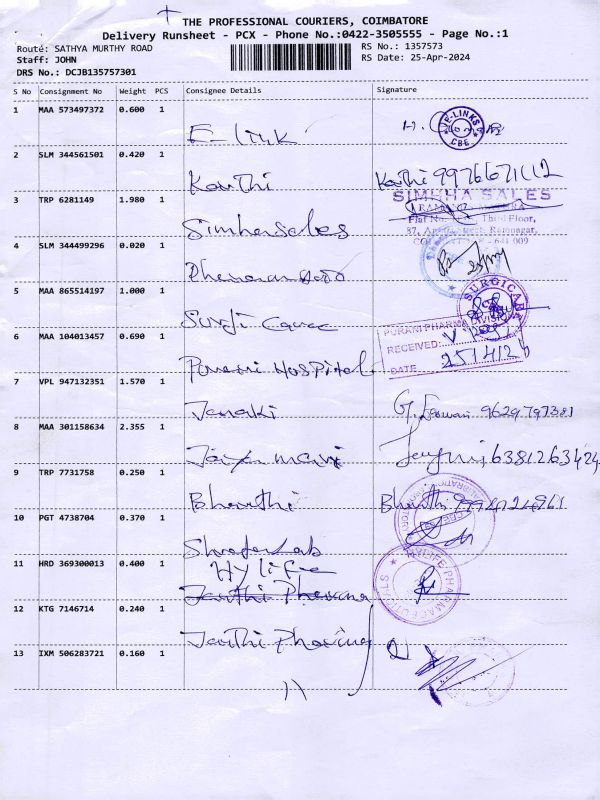 THE PROFESSIONAL COURIERS, COIMBATORE
Delivery Runsheet - PCX - Phone No.:0422-3505555 - Page No.:1
Route: SATHYA MURTHY ROAD
RS No.: 1357573
Staff: JOHN
RS Date: 25-Apr-2024
DRS No.: DCJB135757301
S No Consignment No Weight PCS Consignee Details Signature
1 MAA 573497372 0.600 1
E-link
E-LINKS
CBE
2 SLM 344561501 0.420 1
Karthi Karthi 9976671112
3 TRP 6281149 1.980 1
SIMHHA SALES
Third Floor,
Ramnagar,
641 009
Simhasales
4 SLM 344499296 0.020 1
5 MAA 865514197 1.000 1
SURGICARE
Surgi Caree
6 MAA 104013457 0.690 1
PURANI PHARMA DIVISION
RECEIVED:
DATE 25/4/24
Purani Hospital
7 VPL 947132351 1.570 1
Janaki G. 9629797381
8 MAA 301158634 2.355 1
6381263424
9 TRP 7731758 0.250 1
Bharthi Bharthi 9994024961
10 PGT 4738704 0.370 1
Lab
11 HRD 369300013 0.400 1
Hylife
HYLIFE PHARMACEUTICALS
12 KTG 7146714 0.240 1
13 IXM 506283721 0.160 1